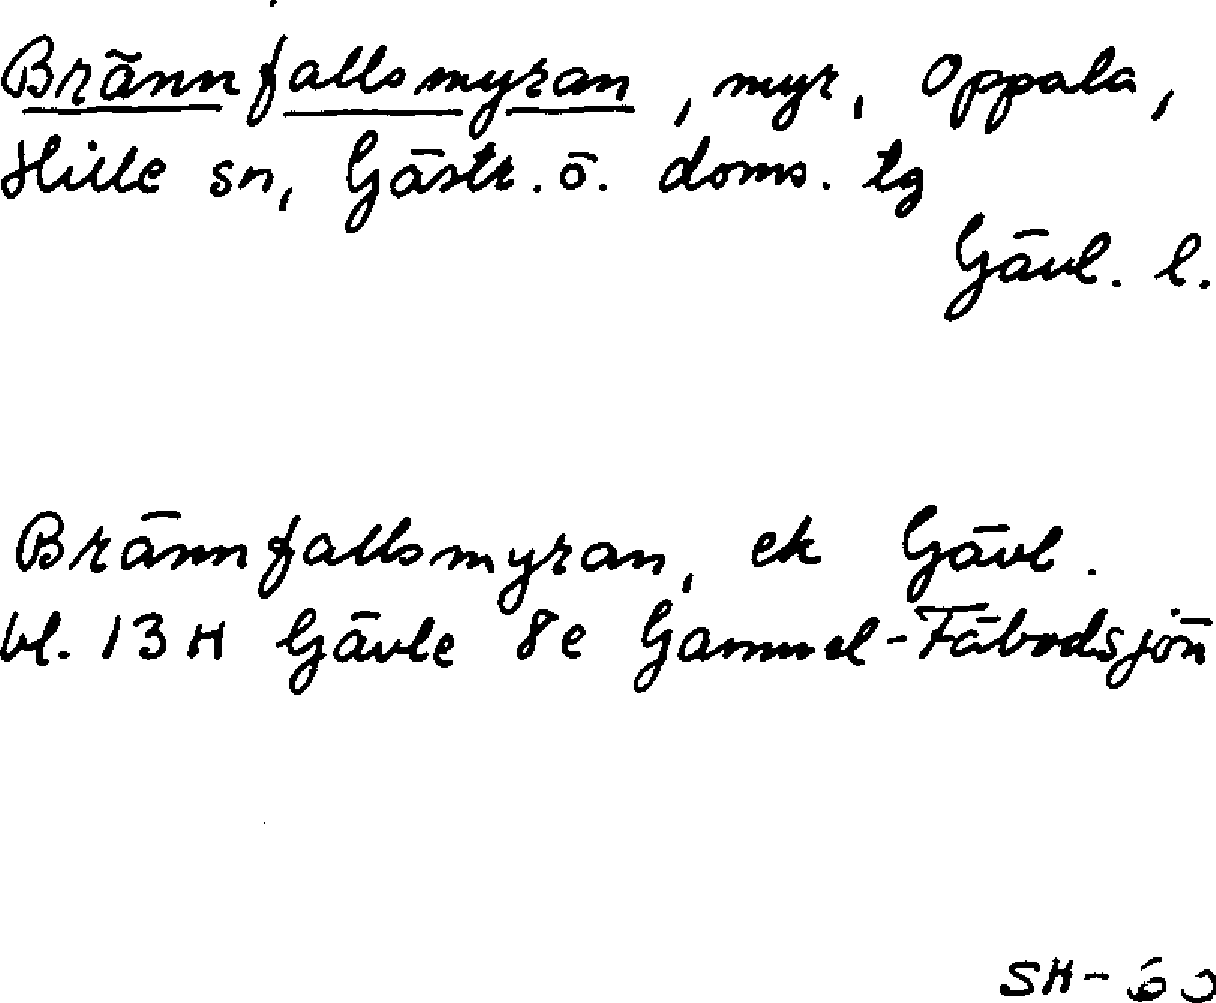 Brännfallsmyran, myr, Oppala,
Hille sn, Gästr. ö. doms. tg
Gävl. l.
Brännfallsmyran, ek Gävl.
bl. 13 H Gävle 8e Gammel-Fäbodsjön